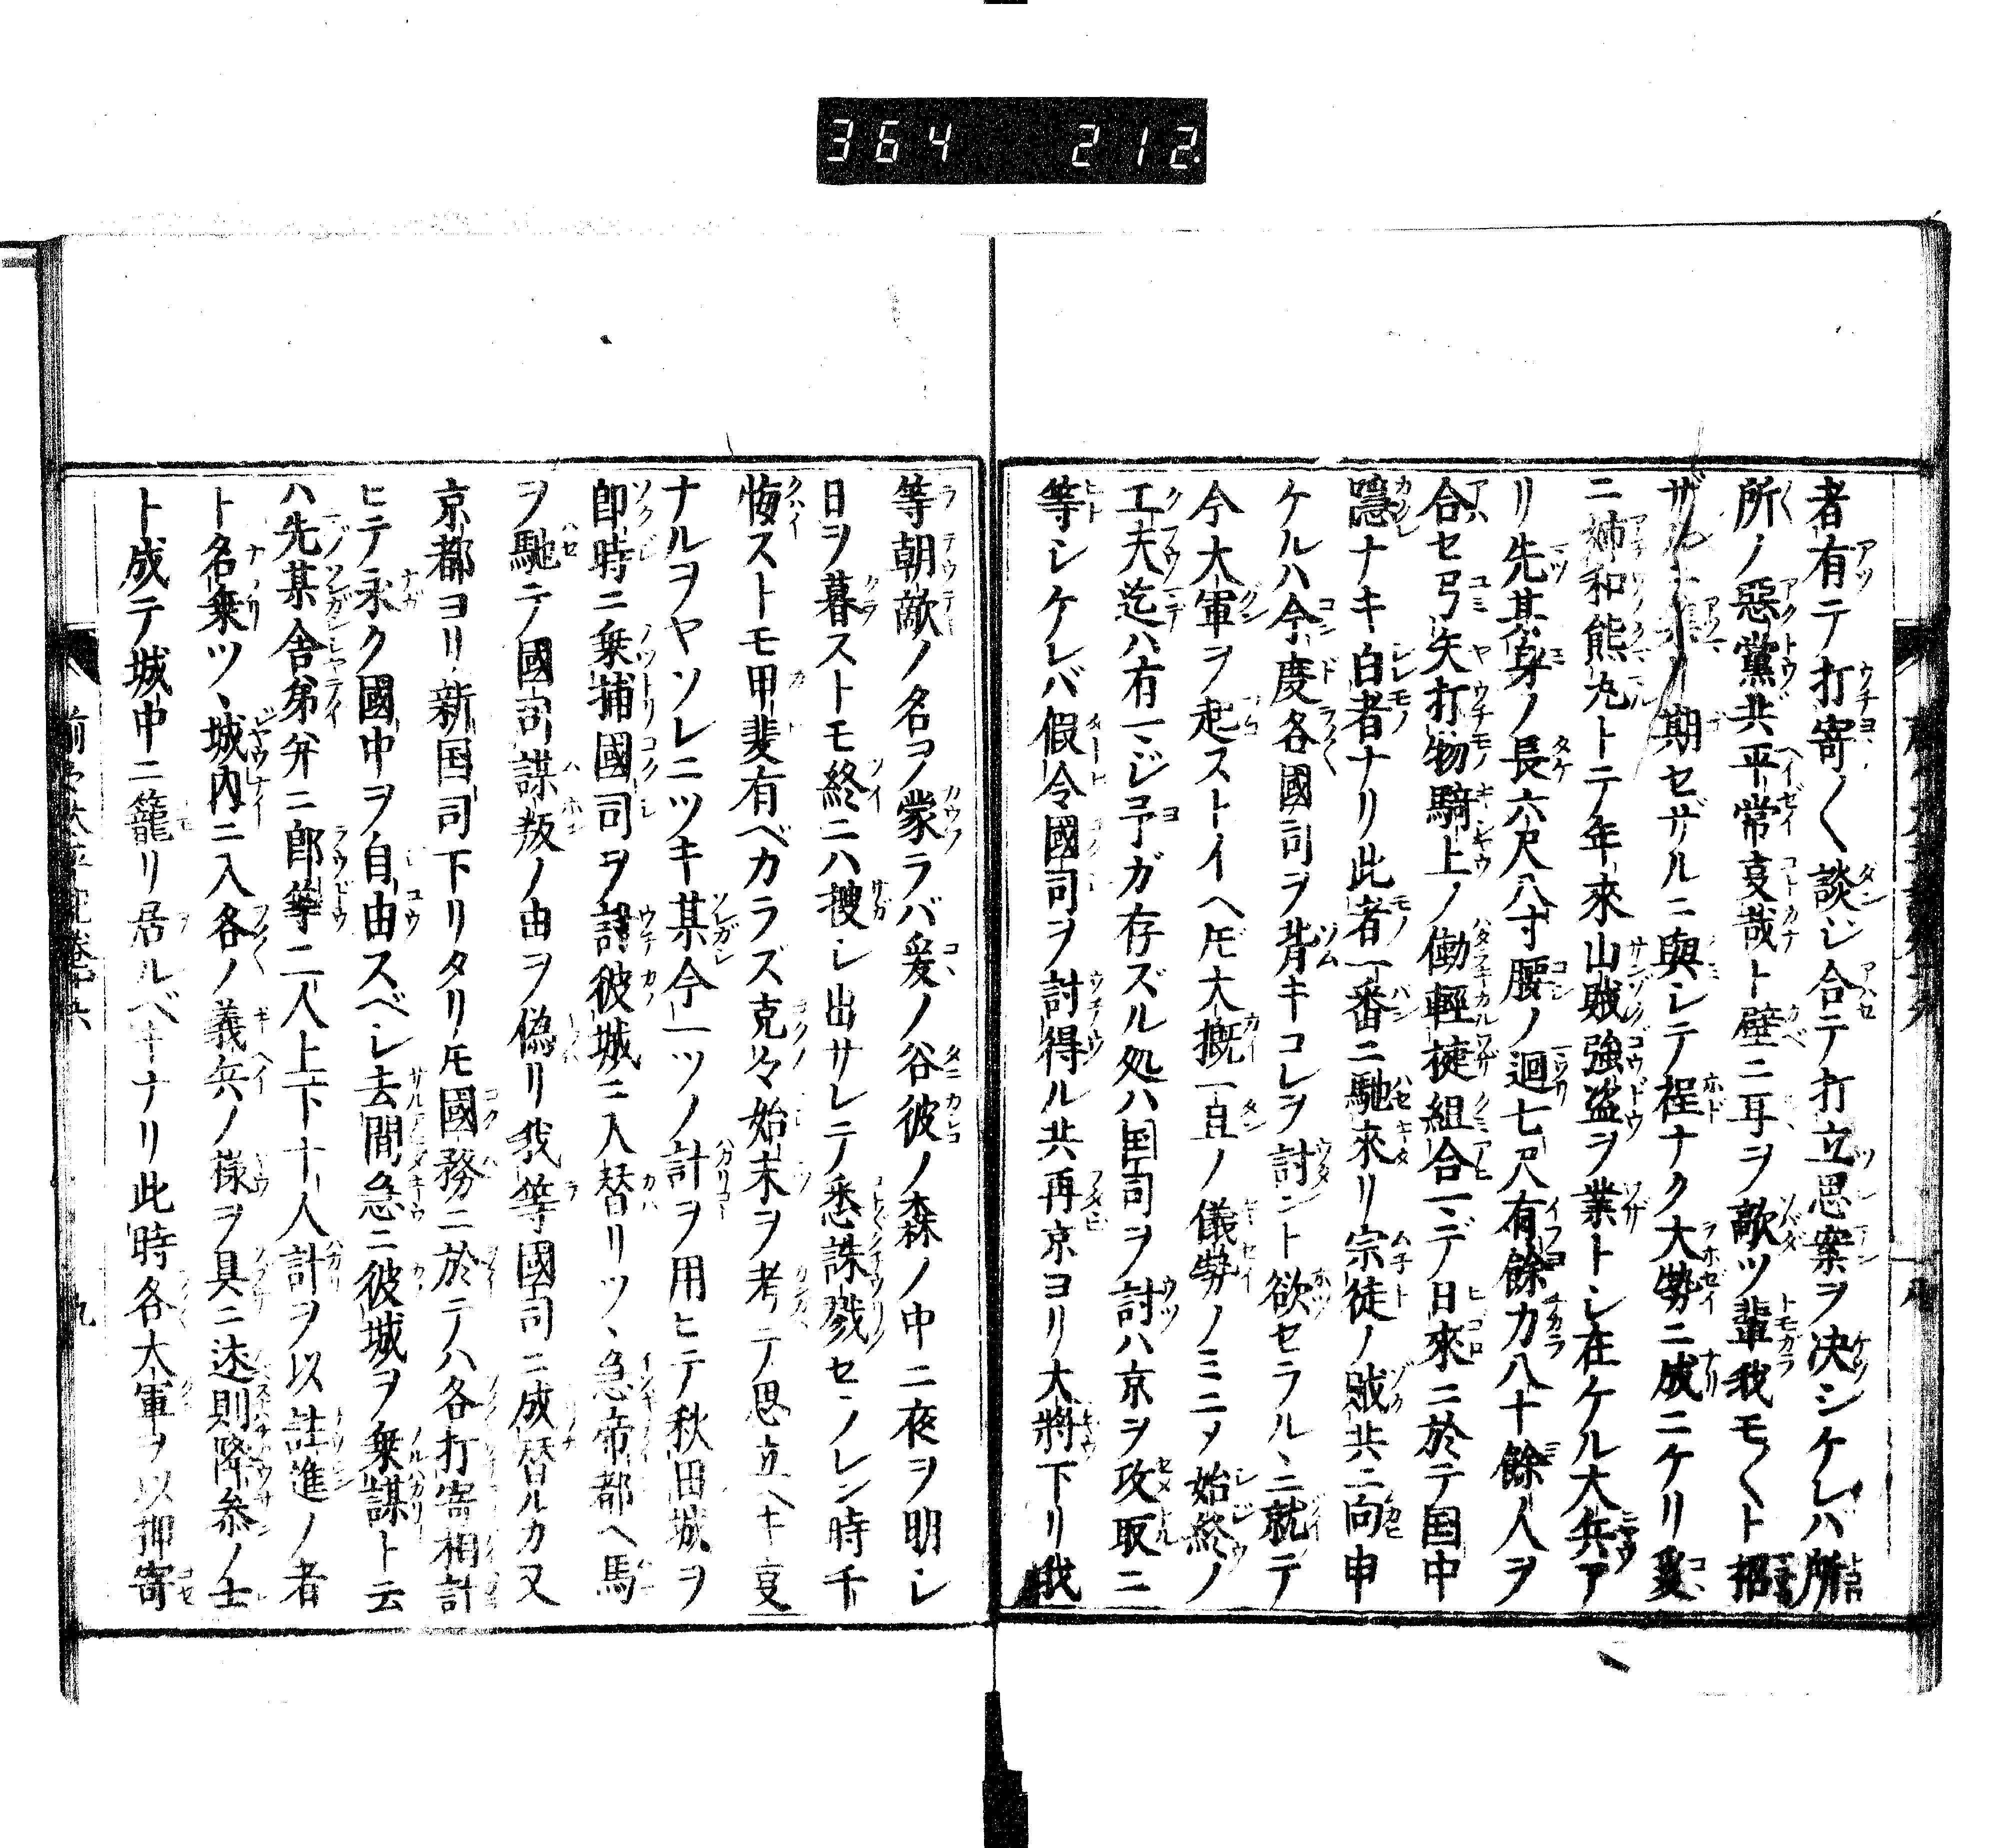 364 212.
者有テ打寄〳〵談ジ合テ打立思案ヲ決シケレハ所
所ノ惡黨共平常夏哉ト壁ニ耳ヲ欹ツ輩我モ〳〵ト招
期セザルニ與シテ程ナク大勢ニ成ニケリ爰
ニ姉和熊丸トテ年來山賊強盗ヲ業トシ在ケル大兵ア
リ先其身ノ長六尺八寸腰ノ迴七尺有餘力八十餘人ヲ
合セ弓矢打物騎上ノ働輕捷組合マデ日來ニ於テ国中
隱ナキ白者ナリ此者一番ニ馳來リ宗徒ノ賊共ニ向申
ケルハ今度各國司ヲ背キコレヲ討ント欲セラルヽニ就テ
今大軍ヲ起ストイヘ𪜈大概一旦ノ儀勢ノミニメ始終ノ
工夫迄ハ有マジ予ガ存ズル処ハ国司ヲ討ハ京ヲ攻取ニ
等シケレバ假令國司ヲ討得ル共再京ヨリ大將下リ我
等朝敵ノ名ヲ蒙ラバ爰ノ谷彼ノ森ノ中ニ夜ヲ明シ
日ヲ暮ストモ終ニハ捜シ出サレテ悉誅戮セラレン時千
悔ストモ甲斐有ベカラズ克々始末ヲ考テ思立ヘキ夏
ナルヲヤソレニツキ某今一ツノ計ヲ用ヒテ秋田城ヲ
即時ニ乗捕國司ヲ討彼城ニ入替リツヽ急帝都ヘ馬
ヲ馳テ國司謀叛ノ由ヲ偽リ我等國司ニ成替ルカ又
京都ヨリ新国司下リタリ𪜈國務ニ於テハ各打寄相計
ヒテ永ク國中ヲ自由スベシ去間急ニ彼城ヲ乗謀ト云
ハ先某舎弟弁ニ郎等二人上下十人計ヲ以註進ノ者
ト名乗ツヽ城內ニ入各ノ義兵ノ様ヲ具ニ述則降参ノ士
ト成テ城中ニ籠リ居ルベキナリ此時各大軍ヲ以抑寄
九